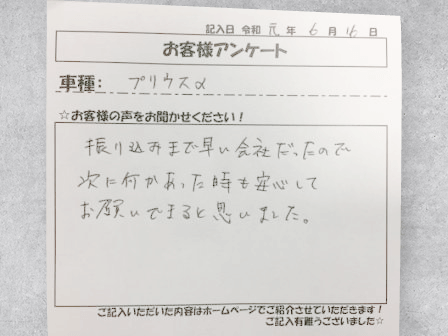 記入日 令和 元 年 6 月 16 日
お客様アンケート
車種: プリウスα
☆お客様の声をお聞かせください!
振り込みまで早い会社だったので
次に何かあった時も安心して
お願いできると思いました。
ご記入いただいた内容はホームページでご紹介させていただきます!
ご記入有難うございました☆